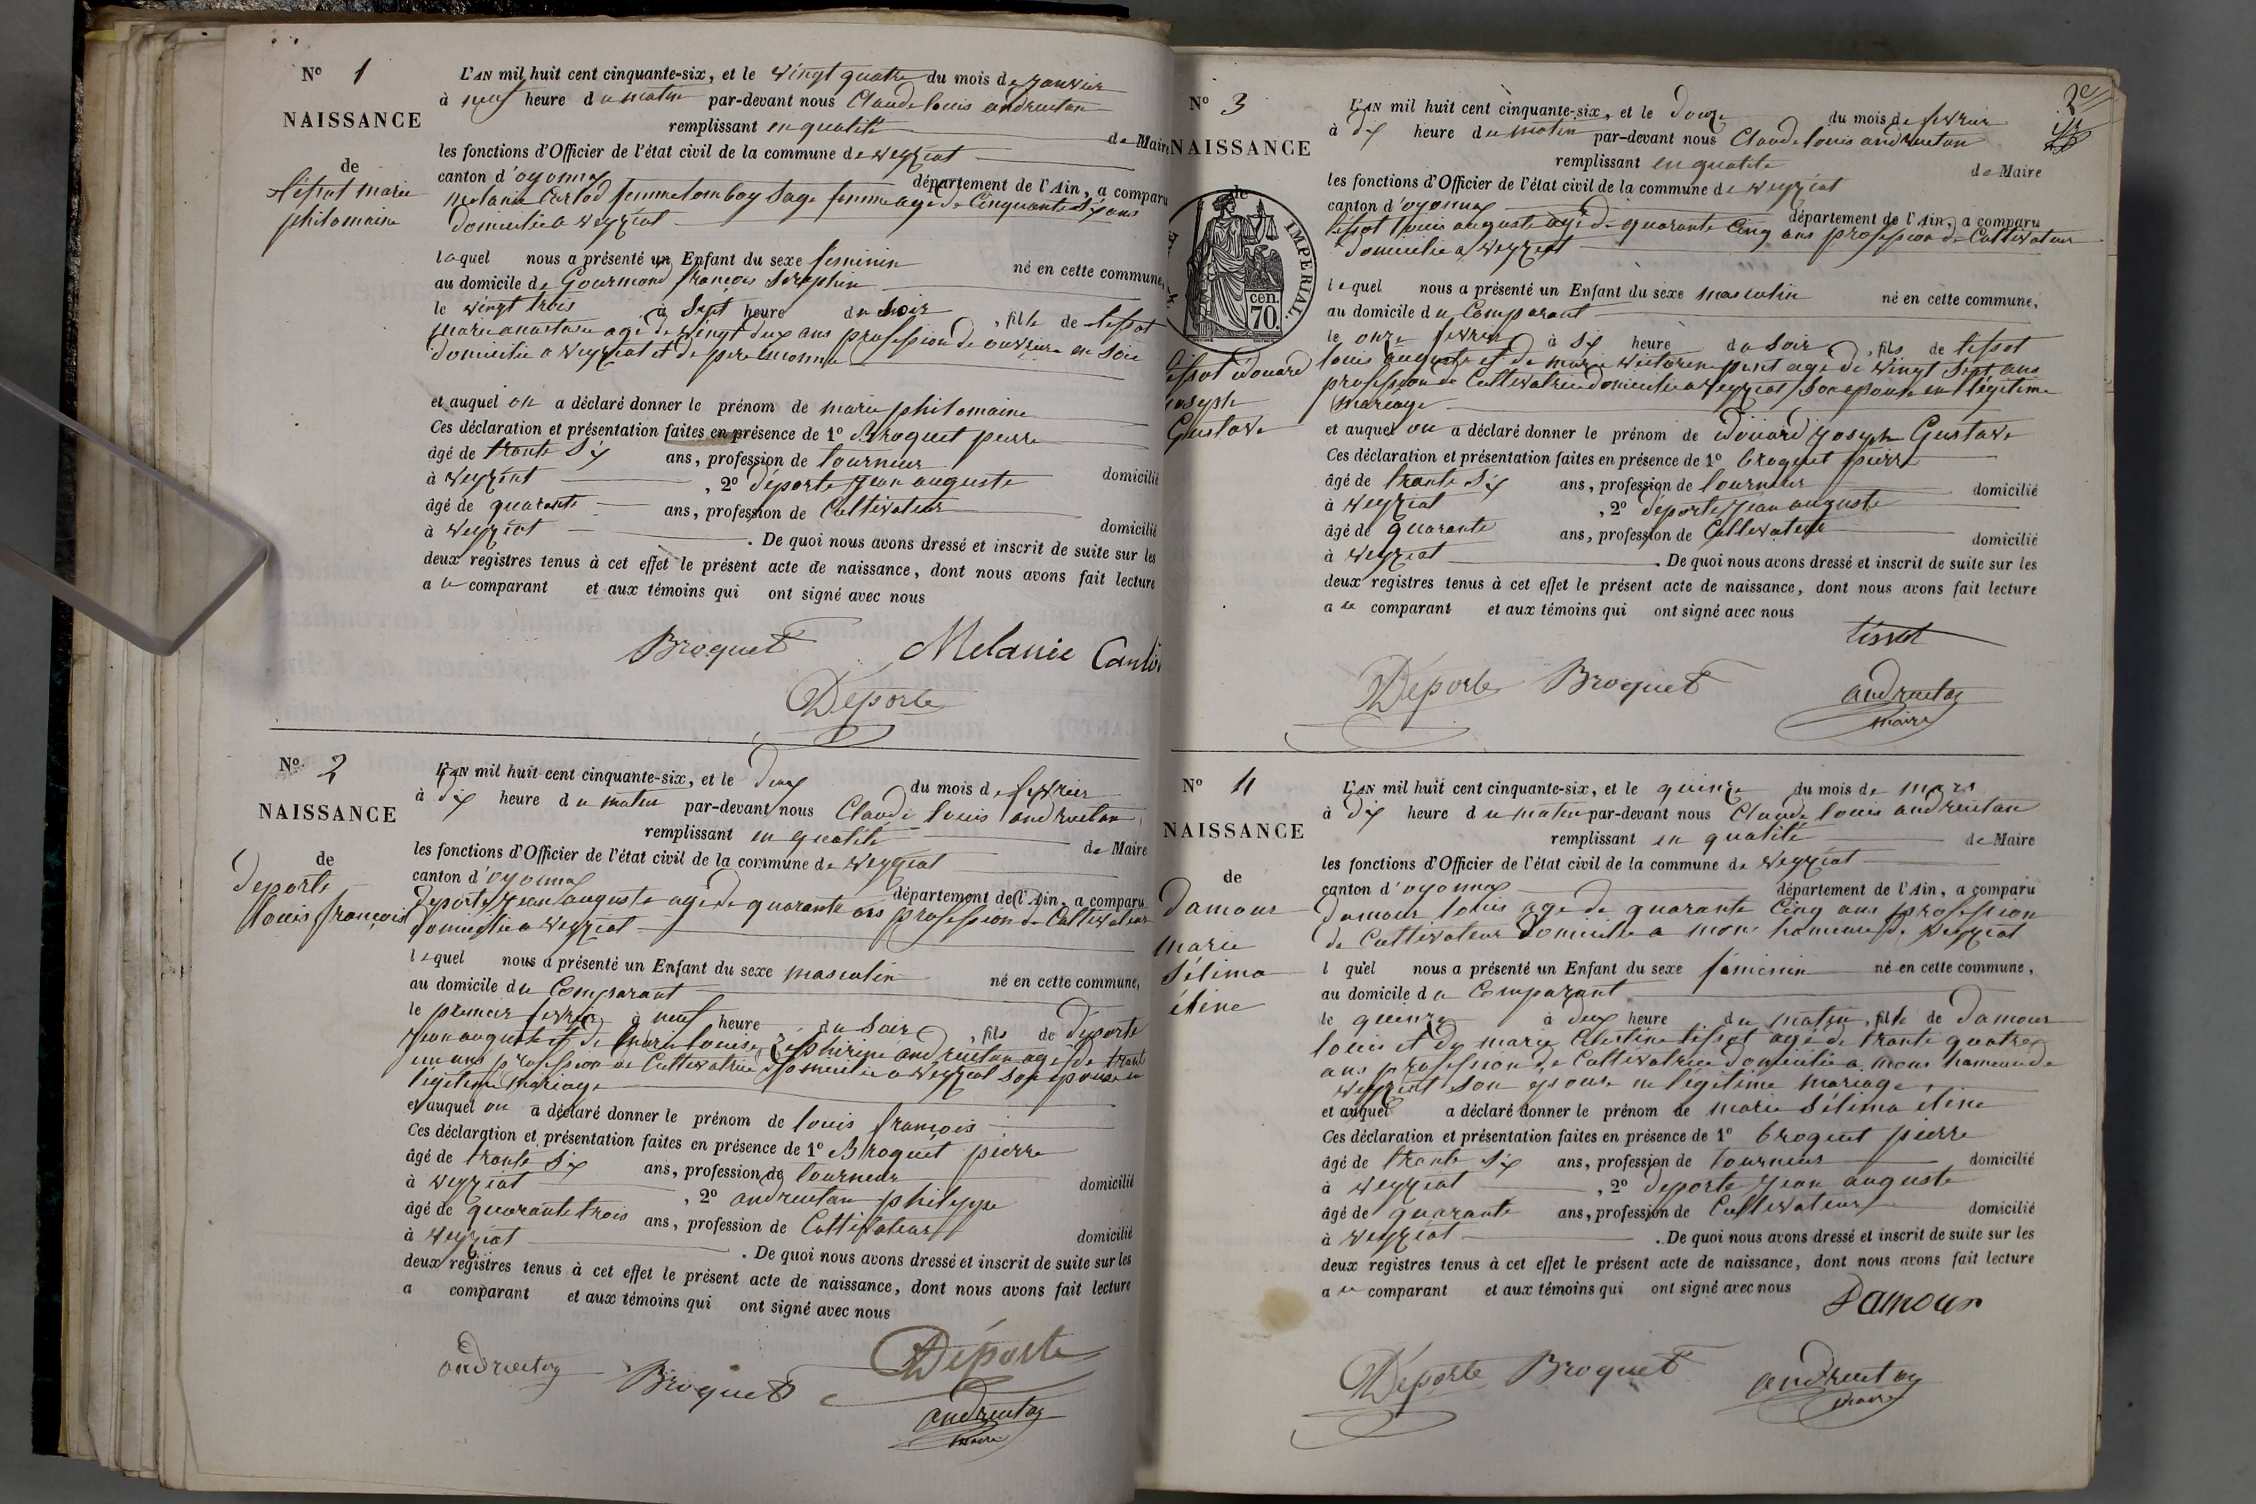 N° 1
NAISSANCE
de
tissot marie
philomaine
L'AN mil huit cent cinquante-six, et le vingt quatre du mois de janvier
à neuf heure du matin par-devant nous Claude louis andruétan
remplissant en qualité de Maire
les fonctions d'Officier de l'état civil de la commune de veyziat
canton d'oyonnax département de l'Ain, a comparu
melanie femme tomboy sage femme agé de Cinquante six ans
domicilié a veyziat
laquel nous a présenté un Enfant du sexe feminin né en cette commune,
au domicile de Gourmand françois Séraphin
le vingt trois à Sept heure du soir, fille de tissot
marie anastasie agé de vingt deux ans profession de ouvrière en soie
domicilié a veyziat et de père inconnu
et auquel on a déclaré donner le prénom de marie philomaine
Ces déclaration et présentation faites en présence de 1° Broquet pierre
âgé de trante six ans, profession de tourneur domicilié
à veyziat, 2° déporte jean auguste
âgé de quarante ans, profession de Cultivateur domicilié
à veyziat. De quoi nous avons dressé et inscrit de suite sur les
deux registres tenus à cet effet le présent acte de naissance, dont nous avons fait lecture
a le comparant et aux témoins qui ont signé avec nous
Broquet Melanie
Déporte
N° 2
NAISSANCE
de
deporte
louis françois
L'AN mil huit cent cinquante-six, et le deux du mois de fevrier
à dix heure du matin par-devant nous Claude louis andruétan
remplissant en qualité de Maire
les fonctions d'Officier de l'état civil de la commune de veyziat
canton d'oyonnax département de l'Ain, a comparu
deporte jean auguste age de quarante ans profession de Cultivateur
domicilié a veyziat
lequel nous a présenté un Enfant du sexe masculin né en cette commune,
au domicile du Comparant
le premier fevrier à neuf heure du Soir, fils de déporte
jean auguste et de marie louise Zéphirine andruétan agé de trante
un ans profession de Cultivatrice domicilié a veyziat son épouse en
légitime mariage
et auquel on a déclaré donner le prénom de louis françois
Ces déclaration et présentation faites en présence de 1° Broquet pierre
âgé de trante six ans, profession de tourneur domicilié
à veyziat, 2° andruétan philippe
âgé de quarante trois ans, profession de Cultivateur domicilié
à veyziat. De quoi nous avons dressé et inscrit de suite sur les
deux registres tenus à cet effet le présent acte de naissance, dont nous avons fait lecture
a comparant et aux témoins qui ont signé avec nous
andruétan Broquet Déporte
andruétan
maire
2e
N° 3
NAISSANCE
de
IMPERIAL.
70. cen.
tissot édouard
joseph
Gustave
L'AN mil huit cent cinquante-six, et le douze du mois de fevrier
à dix heure du matin par-devant nous Claude louis andruétan
remplissant en qualité de Maire
les fonctions d'Officier de l'état civil de la commune de veyziat
canton d'oyonnax département de l'Ain, a comparu
tissot louis auguste agé de quarante Cinq ans profession de Cultivateur
domicilié a veyziat
lequel nous a présenté un Enfant du sexe masculin né en cette commune,
au domicile du Comparant
le onze fevrier à six heure du soir, fils de tissot
louis auguste et de marie victorine agé de vingt sept ans
profession de Cultivatrice domicilié a veyziat son epouse en légitime
mariage
et auquel on a déclaré donner le prénom de édouard joseph Gustave
Ces déclaration et présentation faites en présence de 1° broquet pierre
âgé de trante six ans, profession de tourneur domicilié
à veyziat, 2° déporte jean auguste
âgé de quarante ans, profession de Cultivateur domicilié
à veyziat. De quoi nous avons dressé et inscrit de suite sur les
deux registres tenus à cet effet le présent acte de naissance, dont nous avons fait lecture
a le comparant et aux témoins qui ont signé avec nous
tissot
Déporte Broquet andruétan
maire
N° 4
NAISSANCE
de
damour
marie
Sélima
éline
L'AN mil huit cent cinquante-six, et le quinze du mois de mars
à dix heure du matin par-devant nous Claude louis andruétan
remplissant en qualité de Maire
les fonctions d'Officier de l'état civil de la commune de veyziat
canton d'oyonnax département de l'Ain, a comparu
damour louis age de quarante Cinq ans profession
de Cultivateur domicilié a mons hameau de veyziat
l quel nous a présenté un Enfant du sexe féminin né en cette commune,
au domicile du Comparant
le quinze à deux heure du matin, fille de damour
louis et de marie Celestine tissot agé de trante quatre
ans profession de Cultivatrice domicilié a mons hameau de
veyziat son épouse en légitime mariage
et auquel a déclaré donner le prénom de marie Sélima éline
Ces déclaration et présentation faites en présence de 1° broquet pierre
âgé de trante six ans, profession de tourneur domicilié
à veyziat, 2° deporte jean auguste
âgé de quarante ans, profession de Cultivateur domicilié
à veyziat. De quoi nous avons dressé et inscrit de suite sur les
deux registres tenus à cet effet le présent acte de naissance, dont nous avons fait lecture
a le comparant et aux témoins qui ont signé avec nous
Damour
Déporte Broquet andruétan
maire